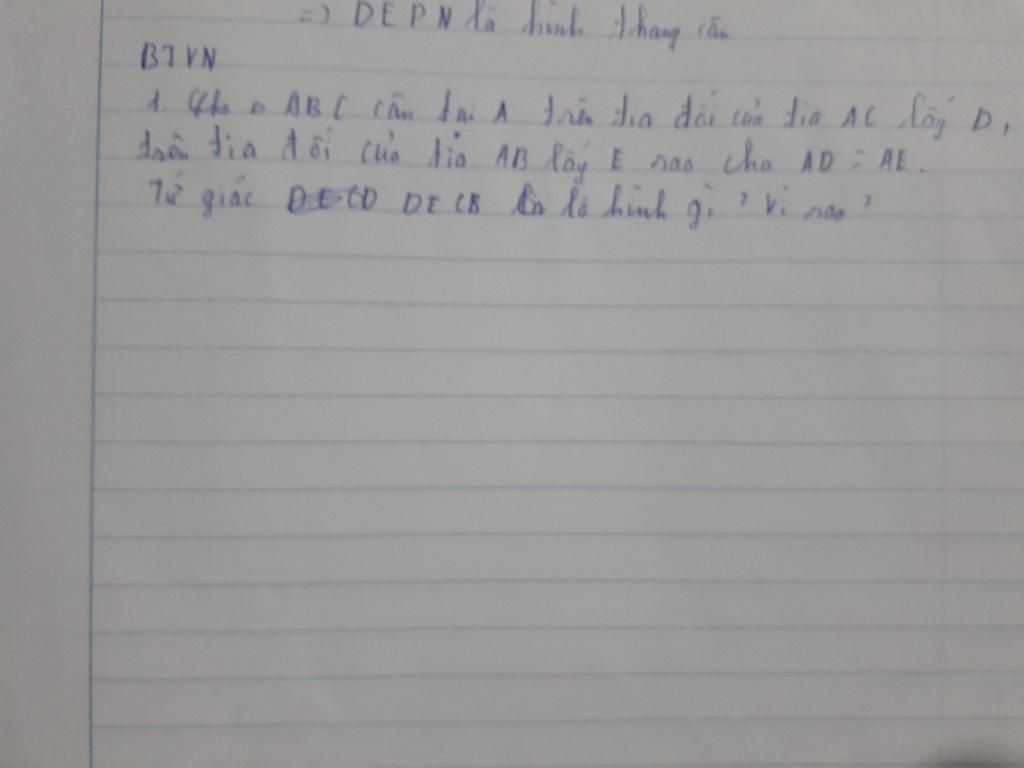 => DEPN là hình thang cân
BTVN
1. Cho Δ ABC cân tại A trên tia đối của tia AC lấy D,
trên tia đối của tia AB lấy E sao cho AD = AE.
Tứ giác DECB là hình gì? Vì sao?